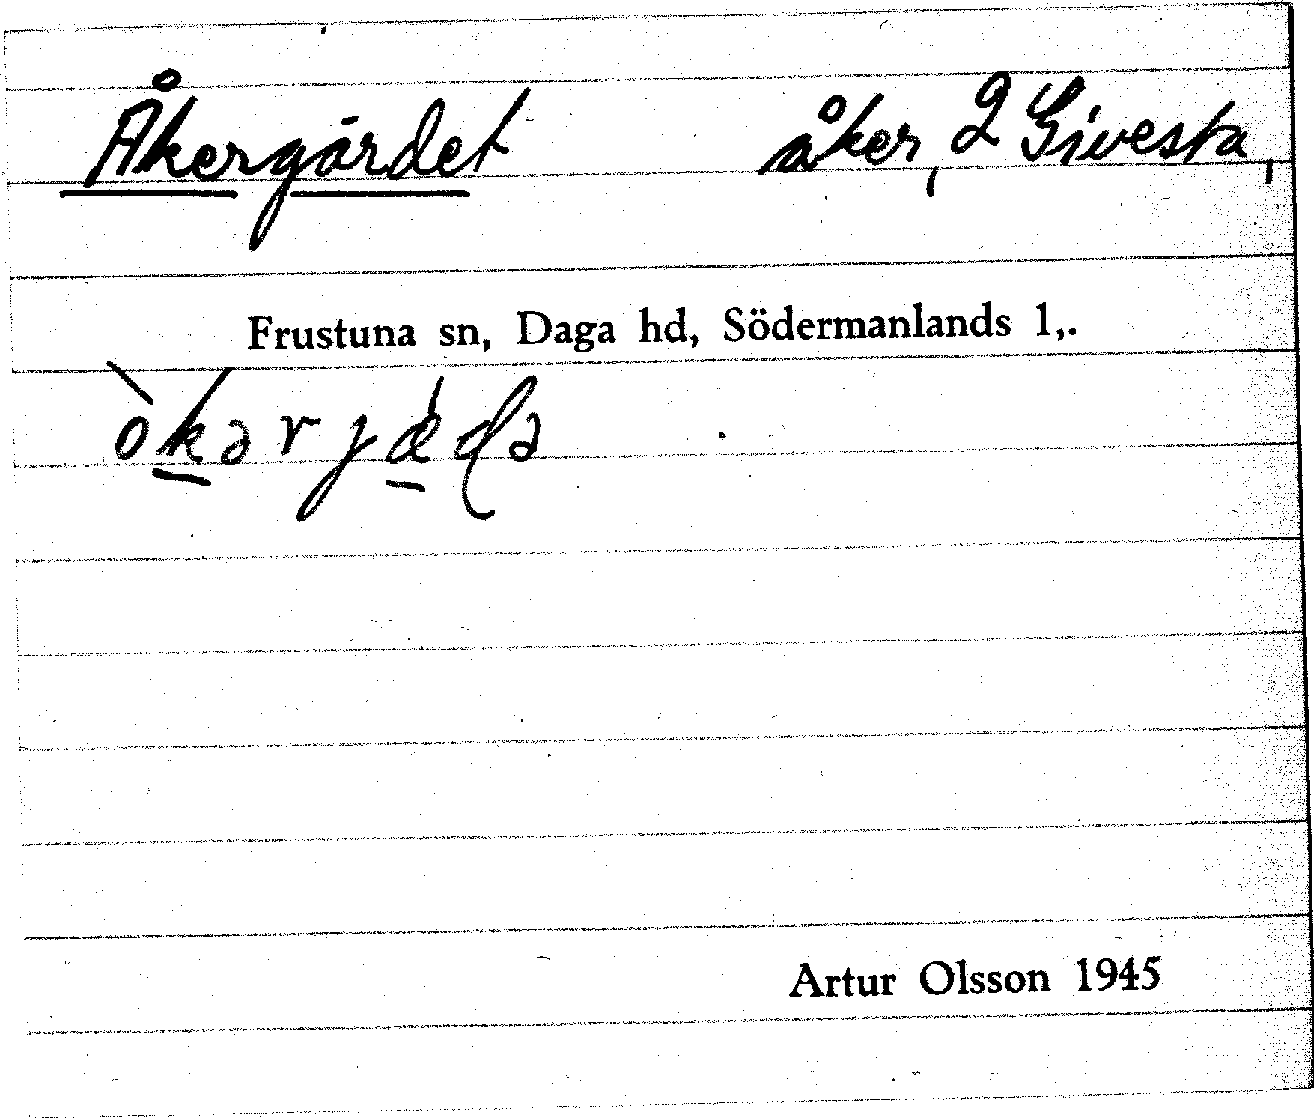 Åkergärdet åker, 2 Givesta,
Frustuna sn, Daga hd, Södermanlands l,.
òkərjæɖə
Artur Olsson 1945